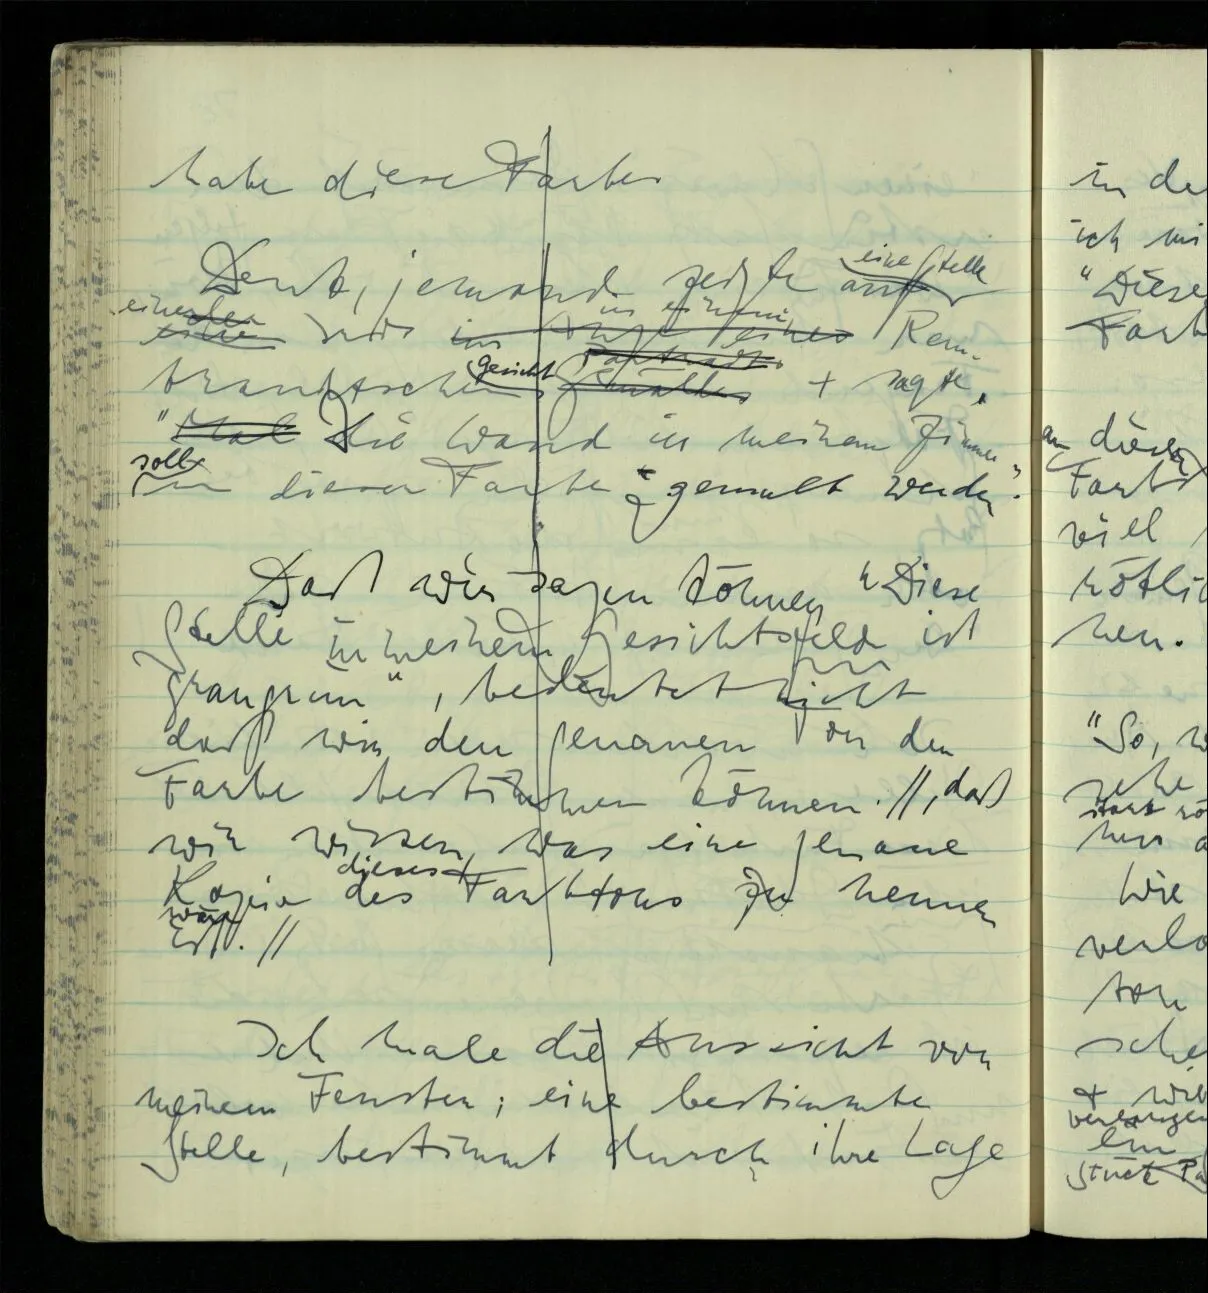 habe diese Farbe.
Denk, jemand zeigte eine Stelle
einer Iris in einem Rem-
brandtschen gesicht + sagte,
"Die Wand in meinem Zimmer
soll in dieser Farbe gemalt werden".
Daß wir sagen können "Diese
Stelle in meinem Gesichtsfeld ist
graugrün", bedeutet nicht
daß wir den genauen Ton der
Farbe bestimmen können. //, daß
wir wissen, was eine genaue
Kopie dieses des Farbtons zu nennen
wäre ist. //
Ich male die Aussicht von
meinem Fenster; eine bestimmte
Stelle, bestimmt durch ihre Lage
in de
ich mi
"Diese
Farb
an dieser
Farb
viel
rötlic
nen.
"So, w
sehe
stark rö
her
Wie
verlo
ton
sche
+ wir
Ein
Stück Pa